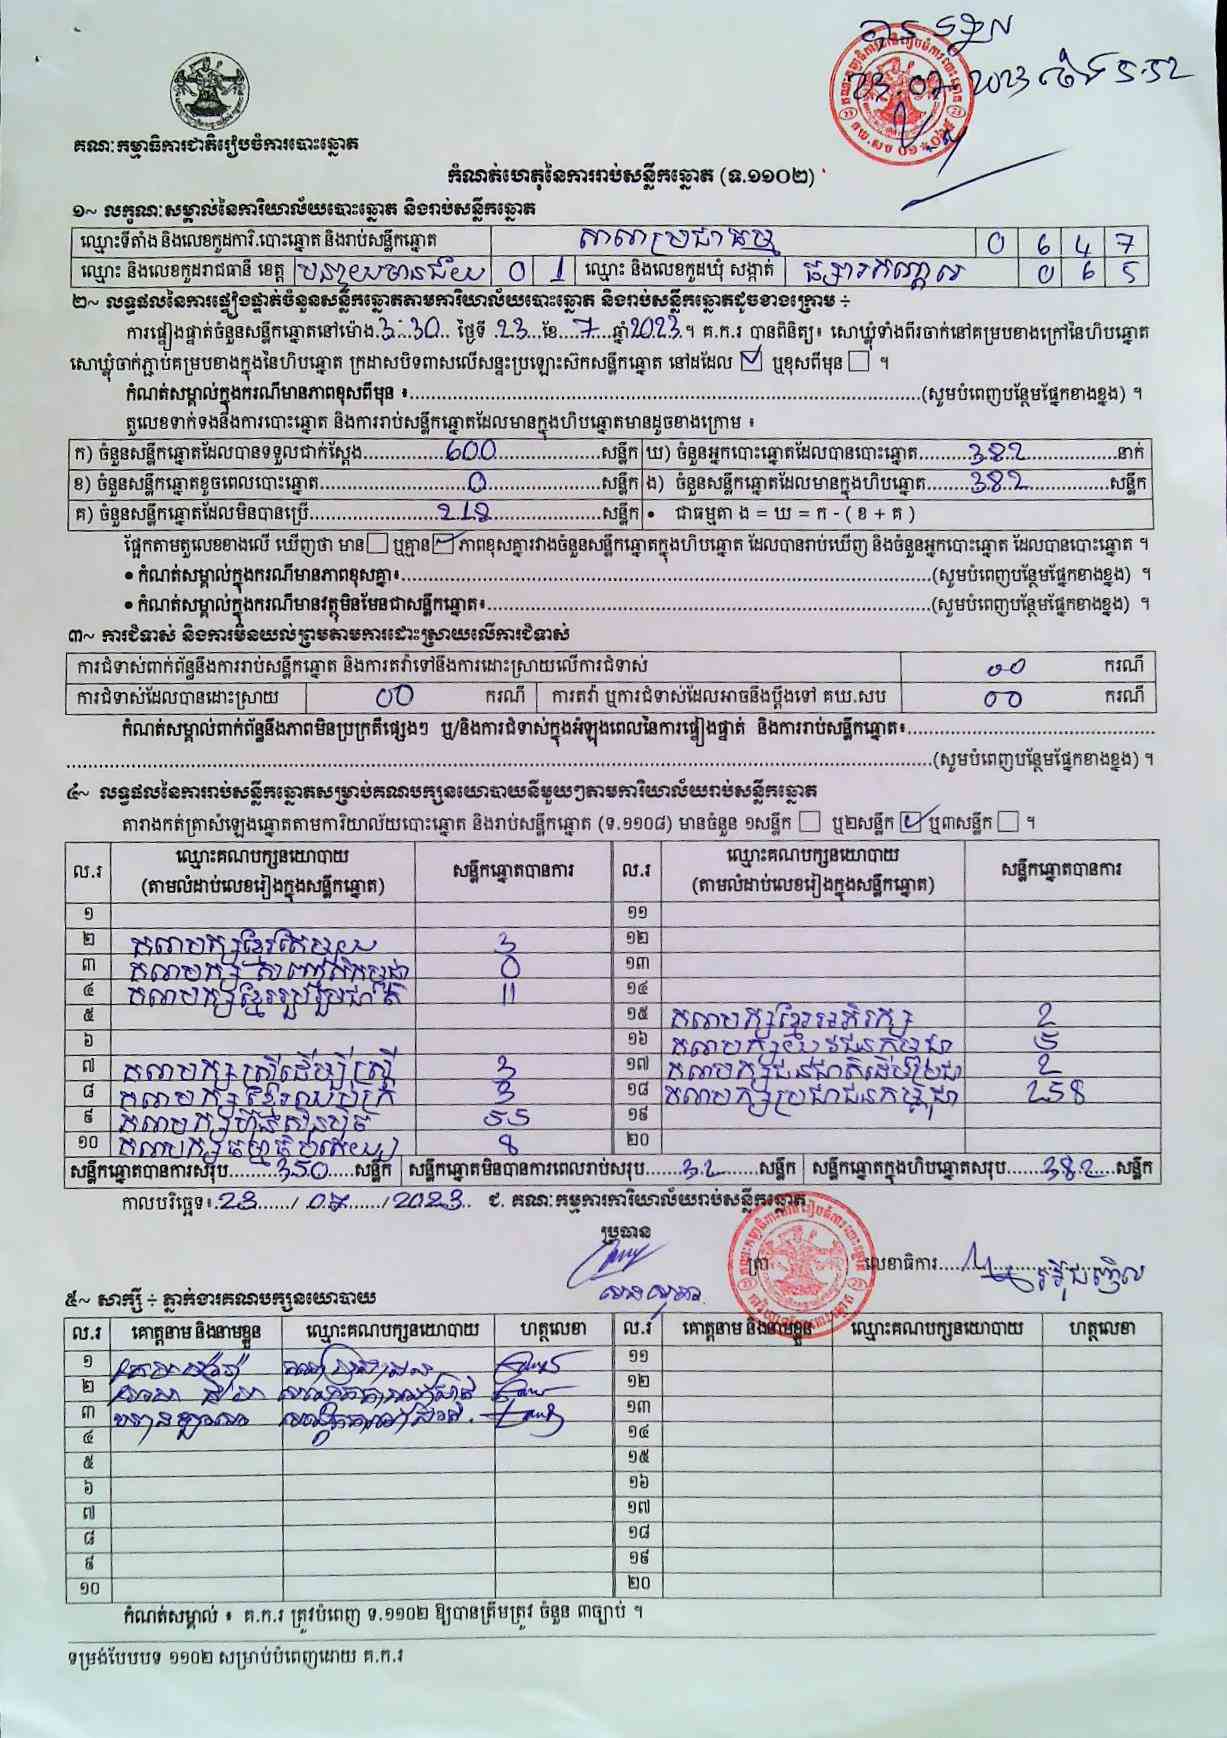 បានទទួល
23.07.2023 ម៉ោង 5:52
គណៈកម្មាធិការជាតិរៀបចំការបោះឆ្នោត
កំណត់ហេតុនៃការរាប់សន្លឹកឆ្នោត (ទ.១១០២)
១~ លក្ខណៈសម្គាល់នៃការិយាល័យបោះឆ្នោត និងរាប់សន្លឹកឆ្នោត
ឈ្មោះទីតាំង និងលេខកូដការិ.បោះឆ្នោត និងរាប់សន្លឹកឆ្នោត សាលាប្រជាធម្ម 0 6 4 7
ឈ្មោះ និងលេខកូដរាជធានី ខេត្ត បន្ទាយមានជ័យ 0 1 ឈ្មោះ និងលេខកូដឃុំ សង្កាត់ ផ្សារកណ្តាល 0 6 5
២~ លទ្ធផលនៃការផ្ទៀងផ្ទាត់ចំនួនសន្លឹកឆ្នោតតាមការិយាល័យបោះឆ្នោត និងរាប់សន្លឹកឆ្នោតដូចខាងក្រោម ÷
ការផ្ទៀងផ្ទាត់ចំនួនសន្លឹកឆ្នោតនៅម៉ោង.3:30.. ថ្ងៃទី .23..ខែ....7...ឆ្នាំ2023.។ គ.ក.រ បានពិនិត្យ៖ សោឃ្លុំទាំងពីរចាក់នៅគម្របខាងក្រៅនៃហិបឆ្នោត
សោឃ្លុំចាក់ភ្ជាប់គម្របខាងក្នុងនៃហិបឆ្នោត ក្រដាសបិទពាសលើសន្ទះប្រឡោះស៊កសន្លឹកឆ្នោត នៅដដែល ☑ ឬខុសពីមុន ☐ ។
កំណត់សម្គាល់ក្នុងករណីមានភាពខុសពីមុន ៖........(សូមបំពេញបន្ថែមផ្នែកខាងខ្នង) ។
តួលេខទាក់ទងនឹងការបោះឆ្នោត និងការរាប់សន្លឹកឆ្នោតដែលមានក្នុងហិបឆ្នោតមានដូចខាងក្រោម ៖
ក) ចំនួនសន្លឹកឆ្នោតដែលបានទទួលជាក់ស្តែង........600........សន្លឹក ឃ) ចំនួនអ្នកបោះឆ្នោតដែលបានបោះឆ្នោត........382........នាក់
ខ) ចំនួនសន្លឹកឆ្នោតខូចពេលបោះឆ្នោត........0........សន្លឹក ង) ចំនួនសន្លឹកឆ្នោតដែលមានក្នុងហិបឆ្នោត........382........សន្លឹក
គ) ចំនួនសន្លឹកឆ្នោតដែលមិនបានប្រើ........218........សន្លឹក • ជាធម្មតា ង = ឃ = ក - ( ខ + គ )
ផ្អែកតាមតួលេខខាងលើ ឃើញថា មាន ☐ ឬគ្មាន ☑ ភាពខុសគ្នារវាងចំនួនសន្លឹកឆ្នោតក្នុងហិបឆ្នោត ដែលបានរាប់ឃើញ និងចំនួនអ្នកបោះឆ្នោត ដែលបានបោះឆ្នោត ។
• កំណត់សម្គាល់ក្នុងករណីមានភាពខុសគ្នា៖........(សូមបំពេញបន្ថែមផ្នែកខាងខ្នង) ។
• កំណត់សម្គាល់ក្នុងករណីមានវត្ថុមិនមែនជាសន្លឹកឆ្នោត៖........(សូមបំពេញបន្ថែមផ្នែកខាងខ្នង) ។
៣~ ការជំទាស់ និងការមិនយល់ព្រមតាមការដោះស្រាយលើការជំទាស់
ការជំទាស់ពាក់ព័ន្ធនឹងការរាប់សន្លឹកឆ្នោត និងការតវ៉ាទៅនឹងការដោះស្រាយលើការជំទាស់ 00 ករណី
ការជំទាស់ដែលបានដោះស្រាយ 00 ករណី ការតវ៉ា ឬការជំទាស់ដែលអាចនឹងប្តឹងទៅ គឃ.សប 00 ករណី
កំណត់សម្គាល់ពាក់ព័ន្ធនឹងភាពមិនប្រក្រតីផ្សេងៗ ឬ/និងការជំទាស់ក្នុងអំឡុងពេលនៃការផ្ទៀងផ្ទាត់ និងការរាប់សន្លឹកឆ្នោត៖........
........(សូមបំពេញបន្ថែមផ្នែកខាងខ្នង) ។
៤~ លទ្ធផលនៃការរាប់សន្លឹកឆ្នោតសម្រាប់គណបក្សនយោបាយនីមួយៗតាមការិយាល័យរាប់សន្លឹកឆ្នោត
តារាងកត់ត្រាសំឡេងឆ្នោតតាមការិយាល័យបោះឆ្នោត និងរាប់សន្លឹកឆ្នោត (ទ.១១០៨) មានចំនួន ១សន្លឹក ☐ ឬ២សន្លឹក ☑ ឬ៣សន្លឹក ☐ ។
ល.រ ឈ្មោះគណបក្សនយោបាយ (តាមលំដាប់លេខរៀងក្នុងសន្លឹកឆ្នោត) សន្លឹកឆ្នោតបានការ ល.រ ឈ្មោះគណបក្សនយោបាយ (តាមលំដាប់លេខរៀងក្នុងសន្លឹកឆ្នោត) សន្លឹកឆ្នោតបានការ
១ ១១
២ គណបក្សខ្មែរតែមួយ 3 ១២
៣ គណបក្ស 0 ១៣
៤ គណបក្សខ្មែររួបរួមជាតិ 11 ១៤
៥ ១៥ គណបក្សខ្មែរអភិរក្ស 2
៦ ១៦ គណបក្សយុវជនកម្ពុជា 5
៧ គណបក្សស្ត្រីដើម្បីស្ត្រី 3 ១៧ គណបក្សជនជាតិដើមកម្ពុជា 2
៨ គណបក្សខ្មែរឈប់ក្រ 3 ១៨ គណបក្សប្រជាជនកម្ពុជា 258
៩ គណបក្សហ៊្វុនស៊ិនប៉ិច 55 ១៩
១០ គណបក្សធម្មាធិបតេយ្យ 8 ២០
សន្លឹកឆ្នោតបានការសរុប........350.....សន្លឹក សន្លឹកឆ្នោតមិនបានការពេលរាប់សរុប......32........សន្លឹក សន្លឹកឆ្នោតក្នុងហិបឆ្នោតសរុប.......382....សន្លឹក
កាលបរិច្ឆេទ៖.23....../.07....../2023.. ជ. គណៈកម្មការការិយាល័យរាប់សន្លឹកឆ្នោត
ប្រធាន
ត្រា
លេខាធិការ........
៥~ សាក្សី ÷ ភ្នាក់ងារគណបក្សនយោបាយ
ល.រ គោត្តនាម និងនាមខ្លួន ឈ្មោះគណបក្សនយោបាយ ហត្ថលេខា ល.រ គោត្តនាម និងនាមខ្លួន ឈ្មោះគណបក្សនយោបាយ ហត្ថលេខា
១ ១១
២ ១២
៣ ១៣
៤ ១៤
៥ ១៥
៦ ១៦
៧ ១៧
៨ ១៨
៩ ១៩
១០ ២០
កំណត់សម្គាល់ ៖ គ.ក.រ ត្រូវបំពេញ ទ.១១០២ ឱ្យបានត្រឹមត្រូវ ចំនួន ៣ច្បាប់ ។
ទម្រង់បែបបទ ១១០២ សម្រាប់បំពេញដោយ គ.ក.រ